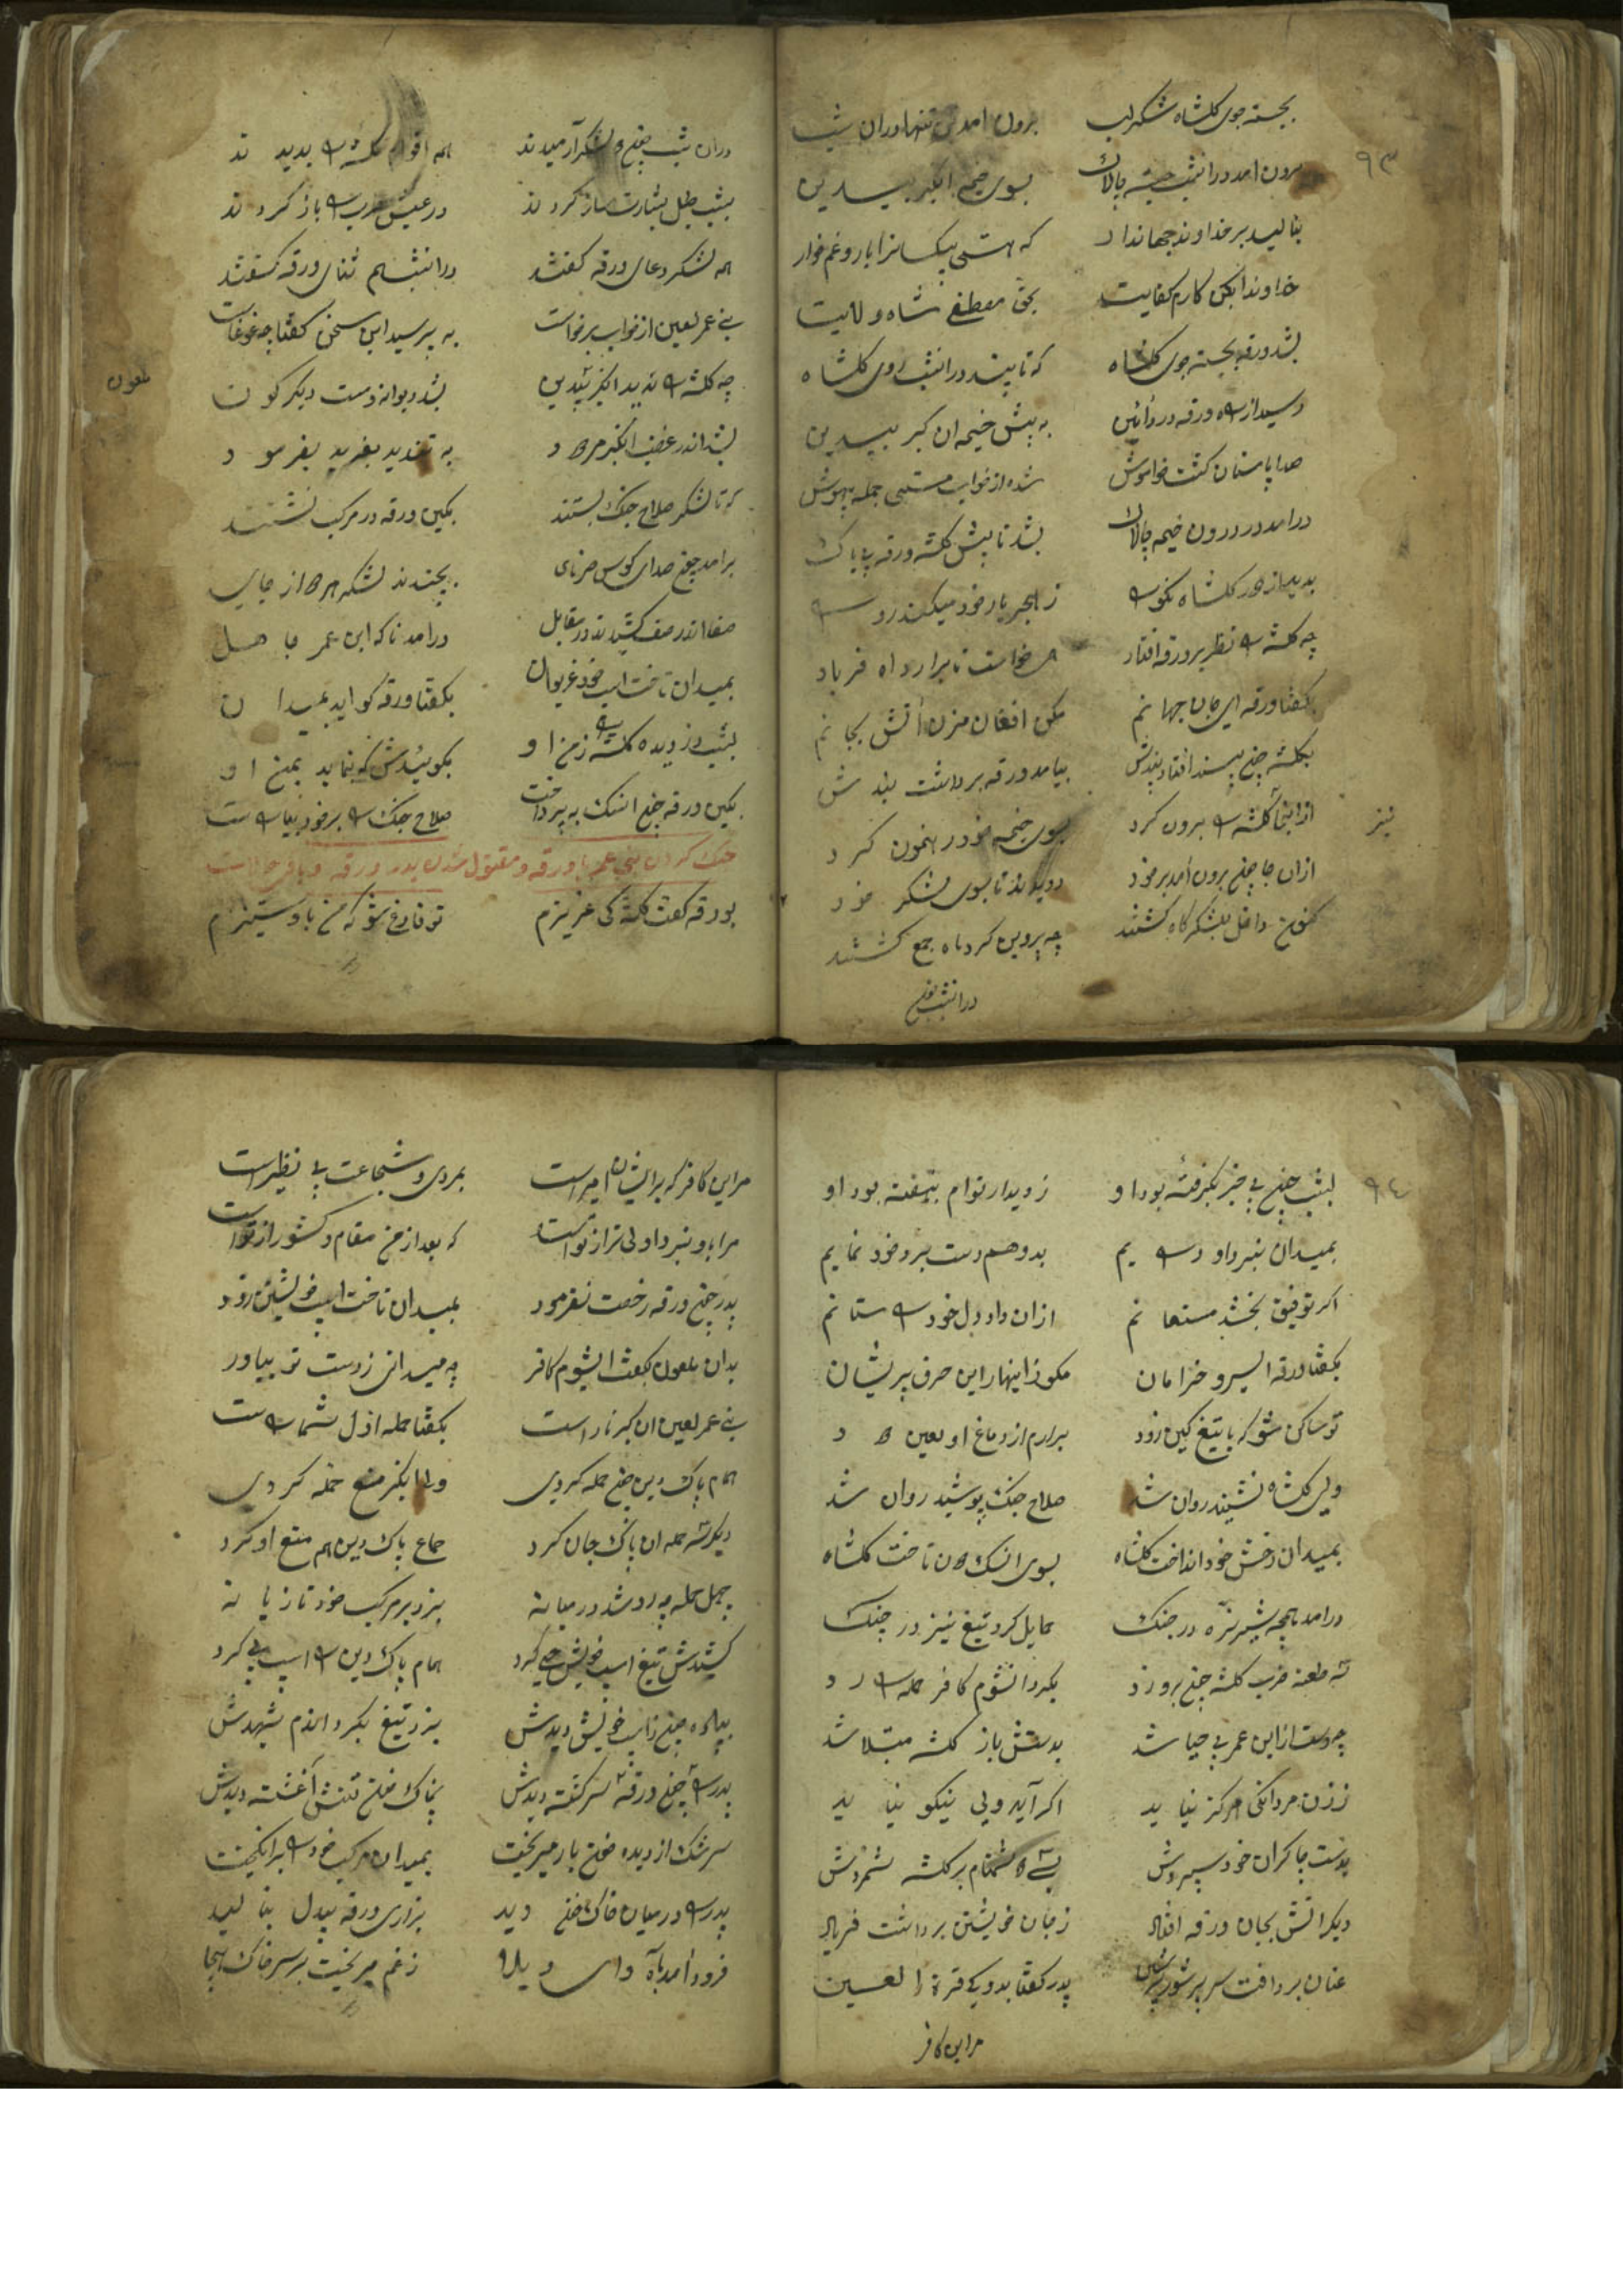 ۹۳
بجسته جوی کلشاه شکر لب برون امد تن تنها دران شب
برون امد دران شب چست چالاک بسوی خیمه انکبر بیدین
بنالید بر خداوند جهاندار که هستی بیکسانرا یار و غم خوار
خداوندا بکن کارم کفایت بحق مصطفی شاه ولایت
بشد ورقه بجسته جوی کلشاه که تا بیند دران شب روی کلشاه
رسید از راه ورقه به پیش خیمه ان کبر بیدین
پاستان کشت خواموش شده از خواب مستی جمله بیهوش
درامد در درون خیمه چالاک بشد تا پیش کلشه ورقه پاک
بدید از دور کلشاه نکو را ز هجر یار خود میکند رو را
چه کلشه را نظر بر ورقه افتاد خواست تا برارد اه فریاد
بکفتا ورقه ای جان جهانم مکن افغان مزن آتش بجانم
بکلشه چون پسند افتاد پندش بیامد ورقه برداشت بندش
نیز
ازانجا کلشه را برون کرد بسوی خیمه خود رهنمون کرد
ازان جا چون برون آمد دویدند تا بسوی لشکر خود
کنون داخل بلشکرکاه کشتند چه پروین کرد ماه جمع کشتند
دران شب چون
دران شب چون لشکر آرمیدند همه اقوام کلشه را بدیدند
بشب طبل بشارت ساز کردند در عیش طرب را باز کردند
همه لشکر دعای ورقه کفتند دران شب هم ثنای ورقه سفتند
بنی عمر لعین از خواب برخواست به پرسید این سخن کفتا چه غوغاست
چه کلشه را ندید انکبر بیدین بشد دیوانه وست دیکر کون
ملعون
بشد اندر غضب انکبر مردود به تهدید بفرمود
که تا لشکر صلاح جنک بستند بکین ورقه در مرکب نشستند
برامد چون صدای کوس حرنای بجنبدند لشکر از جای
صفا اندر صف کشیدند در مقابل درامد ناکه ابن عمر جاهل
بمیدان تاخت اسب خود غریوان بکفتا ورقه کو اید بمیدان
بشب دزدیده کلشه را زمن او بکوئیدش که نماید بمن او
بکین ورقه چون اشک به پرداخت صلاح جنک را بر خود بیاراست
جنک کردن بنی عمر با ورقه و مقتول شدن پدر ورقه و باقی حالات
بورقه کفت کلشه کی عزیزم تو فارغ شو که من با او ستیزم
۹٤
بشب چون بی خبر بکرفته بود او ز دیدار توام بنهفته بود او
بمیدان نبرد او درایم بدو هم دست برد خود نمایم
اکر توفیق بخشد مستعانم ازان داد دل خود را ستانم
بکفتا ورقه ای سرو خرامان مکو زاینها راین حرف پریشان
تو ساکن شو که با تیغ کین زود برارم از دماغ او لعین دود
ولی کلشاه نشنید روان شد صلاح جنک پوشید روان شد
بمیدان رخش خود انداخت کلشاه بسوی تاخت کلشاه
درامد همچه شیر نره در جنک حمایل کرد تیغ تیز در چنک
سه طعنه ضرب کلشه چون برو زد بکرد انشوم کافر حمله را رد
این عمر بی حیا شد بدستش باز کلشه مبتلا شد
ز زن مردانکی هرکز نیاید اکر آید ولی نیکو نیاید
بدست چاکران خود سپردش بسی دشنام بر کلشه شمردش
دیکر اتش بجان ورقه افتاد ز جان خویشتن برداشت فریاد
عنان برداخت سر پر شور پدر کفتا بدو کی قرة العین
مراین کافر
مراین کافر که برایشان امیر است بمردی و شجاعت بی نظیر است
مرا با او نبرد اولی تر از تو است که بعد از من مقام و کشور از تو است
پدر چون ورقه رخصت نفرمود بمیدان تاخت اسب خویشتن زود
بدان ملعون بکفت ایشوم کافر چه میدانی ز دست تو بیاور
بنی عمر لعین ان کبر ناراست بکفتا حمله اول شما راست
همام پاک دین چون حمله کردی ولی انکبر منع حمله کردی
دیکر سه حمله ان پاک جان کرد همام پاک دین هم منع او کرد
چهل حمله چه رد شد در میانه بزد بر مرکب خود تازیانه
کشیدش تیغ اسب خویش کرد همام پاک دین را اسب پی کرد
پیاده چون ز اسب خویش دیدش بزد تیغ بکرد اندم شهیدش
پدر را چون ورقه سرکشته دیدش بخاک خون تنش آغشته دیدش
سرشک از دیده خون بار میریخت بمیدان مرکب خود را برانکیخت
پدر را در میان خاک خون دید بزاری ورقه بیدل بنالید
فرود آمد بآه وای ویلا ز غم میریخت بر سر خاک انجا